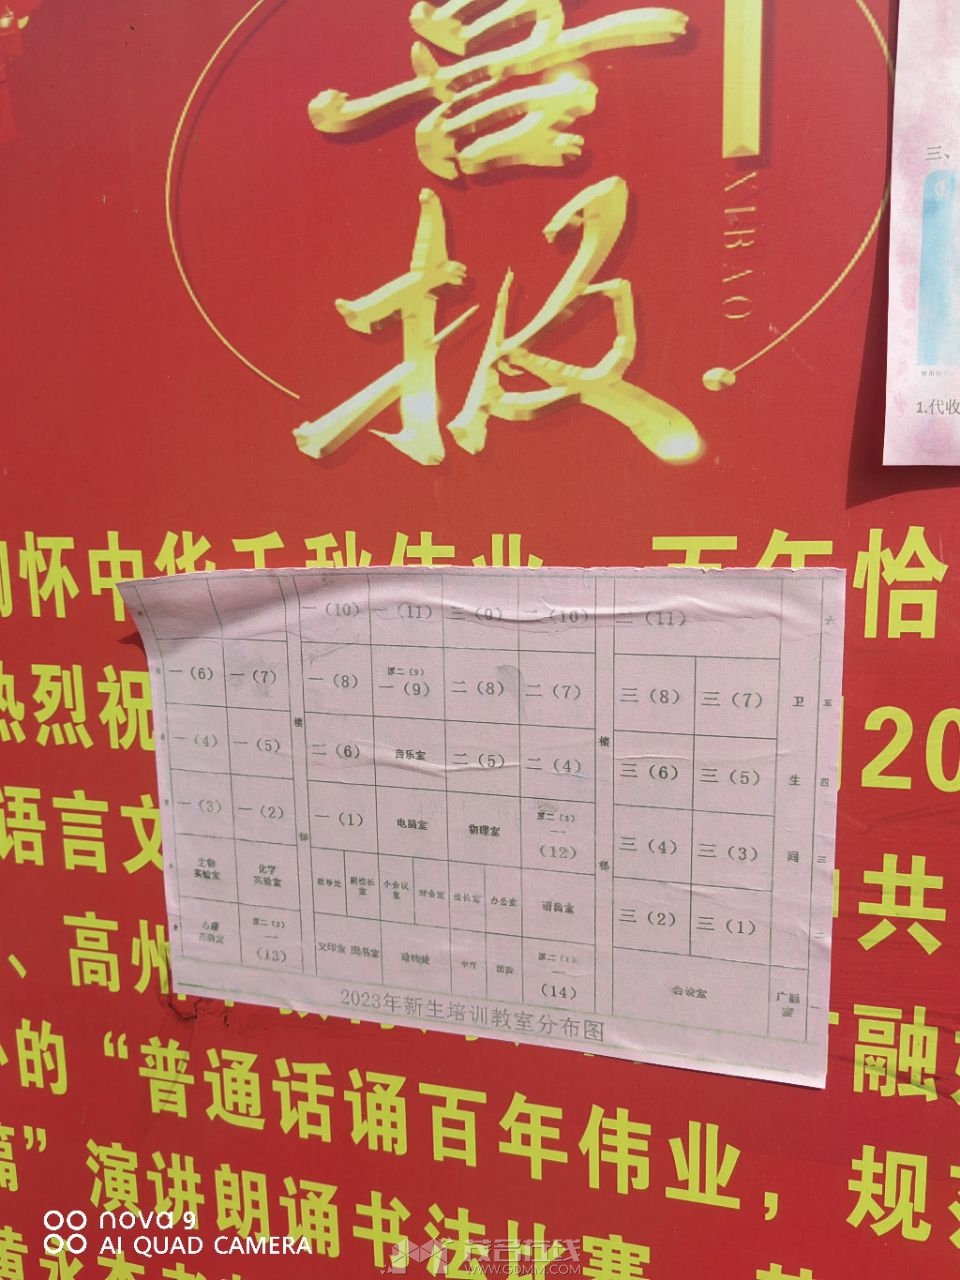 喜
报
XIBAO
三、
1.代收
怀中华千秋伟业 百年恰
热烈祝 20
语言文 中共
、高州 融
的“普通话诵百年伟业，规范
篇”演讲朗诵书法比赛
一（10） 一（11） 三（9） 二（10） 二（11） 六
一（6） 一（7） 一（8） 原二（9） 一（9） 二（8） 二（7） 三（8） 三（7） 卫 五
一（4） 一（5） 楼 二（6） 音乐室 二（5） 二（4） 楼 三（6） 三（5） 生 四
一（3） 一（2） 梯 一（1） 电脑室 物理室 一（12） 梯 三（4） 三（3） 间 三
生物实验室 化学实验室 教导处 副校长室 小会议室 财会室 校长室 办公室 语音室 三（2） 三（1） 二
心理咨询室 原二（2） 一（13） 文印室 图书室 总务处 中厅 团委 原二（1） 一（14） 会议室 广播室 一
2023年新生培训教室分布图
nova 9
AI QUAD CAMERA
茂名在线
WWW.GDMM.COM